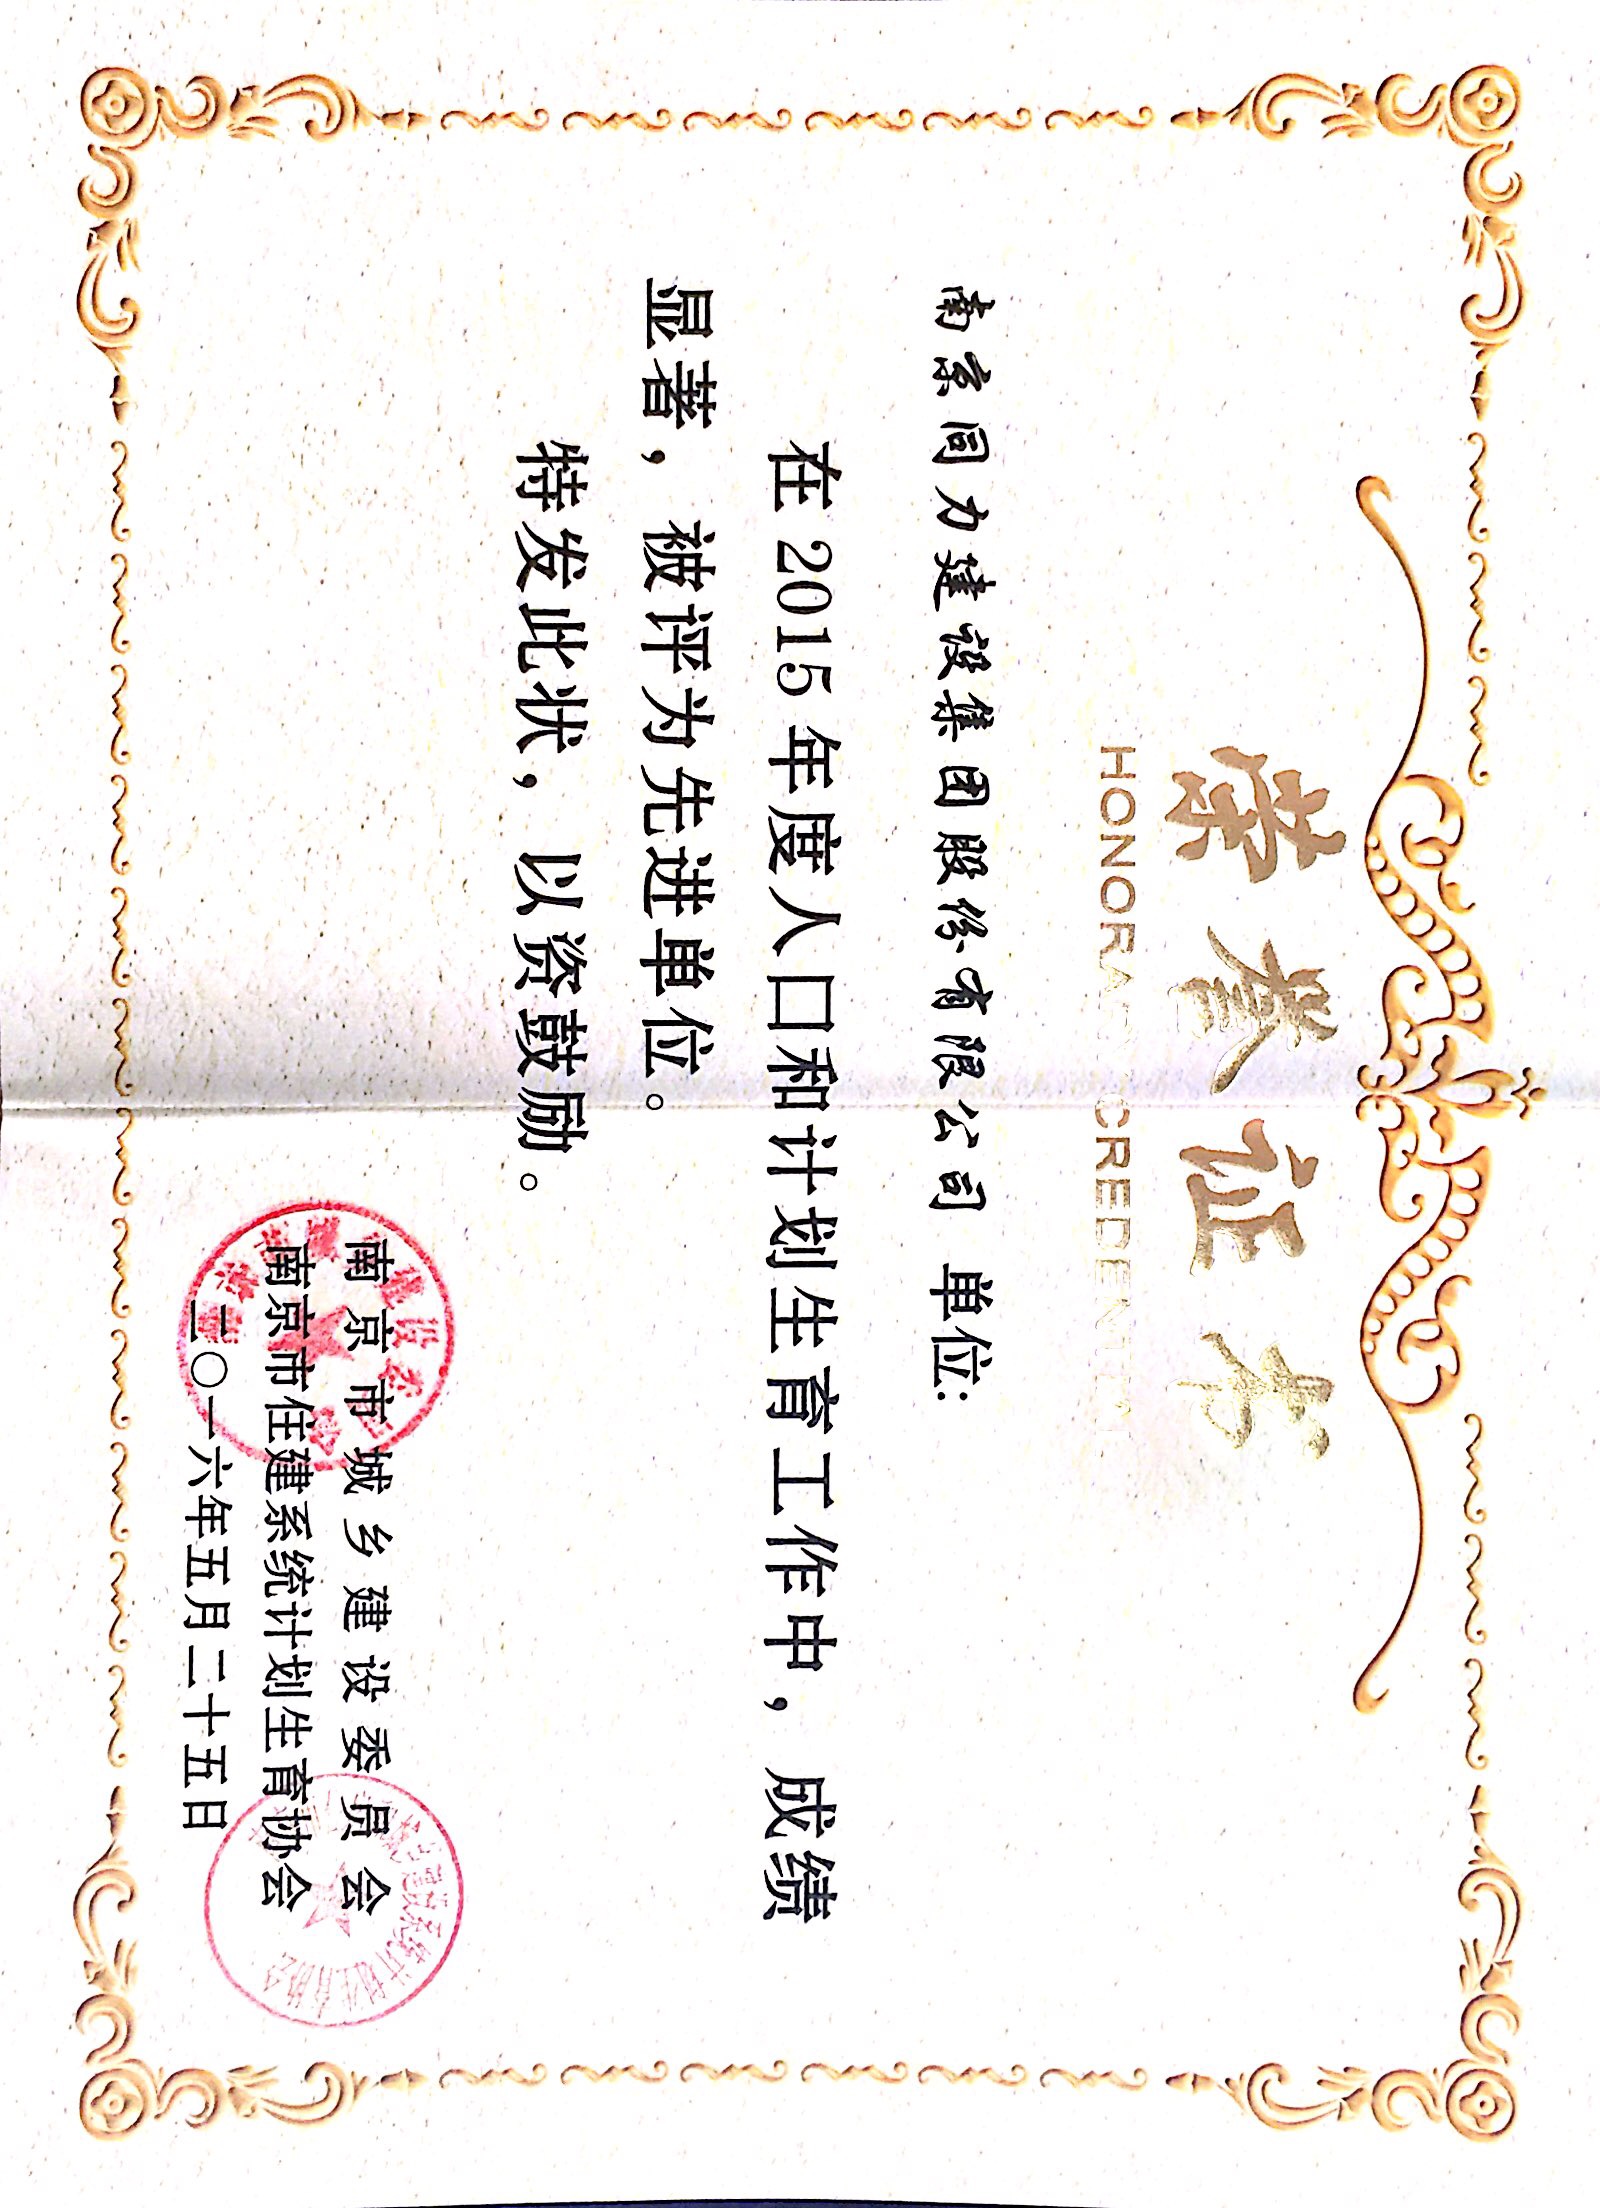 荣誉证书
HONORARY CREDENTIAL
南京同力建设集团股份有限公司 单位:
在2015年度人口和计划生育工作中，成绩
显著，被评为先进单位。
特发此状，以资鼓励。
南京市城乡建设委员会
南京市住建系统计划生育协会
二〇一六年五月二十五日